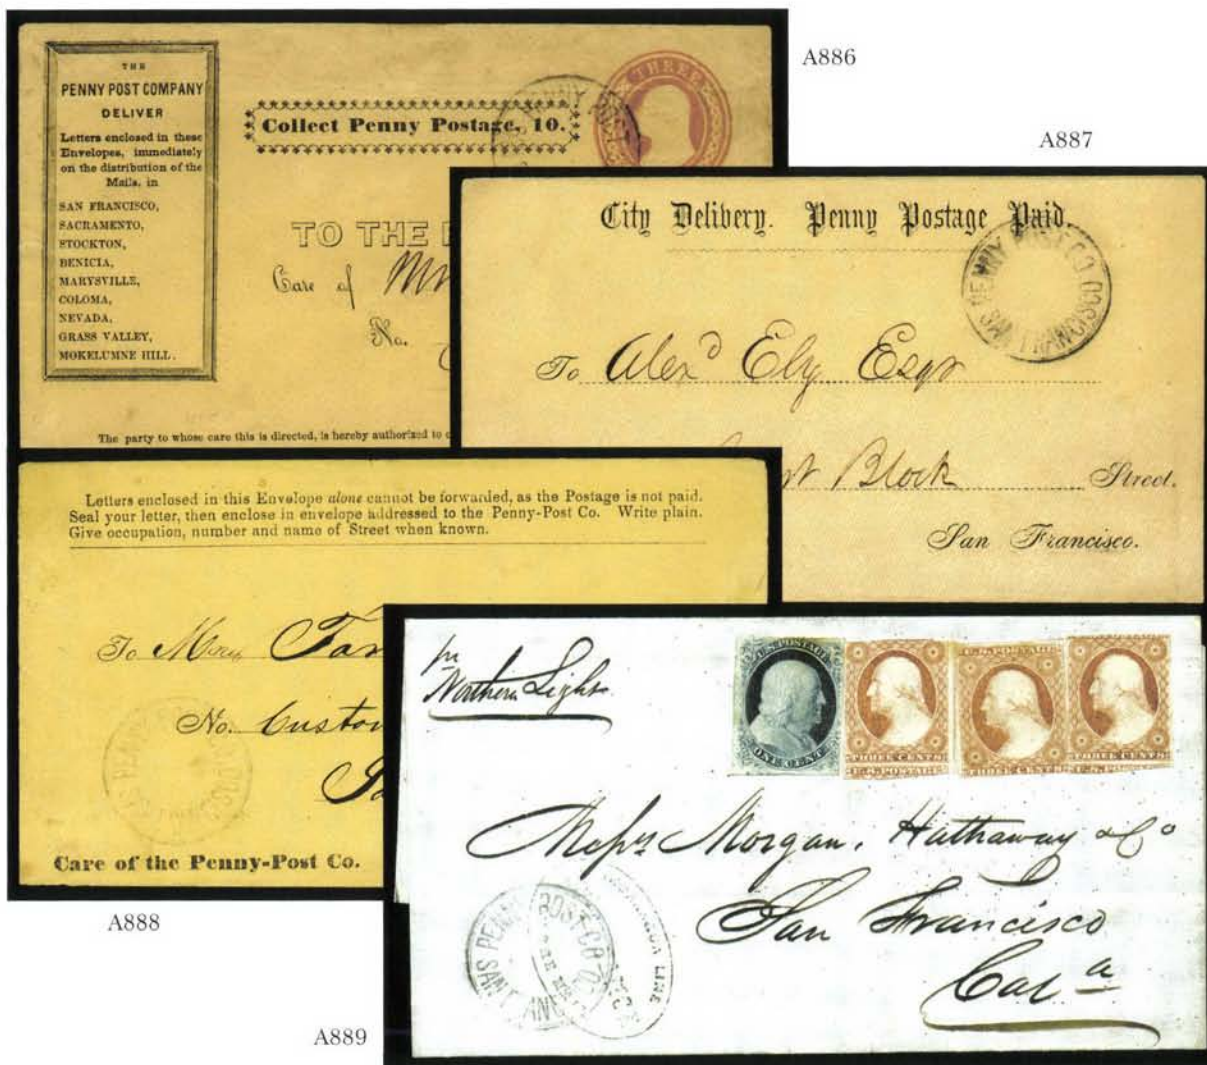 A886
THE
PENNY POST COMPANY
DELIVER
Letters enclosed in these
Envelopes, immediately
on the distribution of the
Mails, in
SAN FRANCISCO,
SACRAMENTO,
STOCKTON,
BENICIA,
MARYSVILLE,
COLOMA,
NEVADA,
GRASS VALLEY,
MOKELUMNE HILL.
Collect Penny Postage, 10.
THREE
PENNY POST
TO THE
Care of
No.
The party to whose care this is directed, is hereby authorized to
A887
City Delivery. Penny Postage Paid.
PENNY POST CO
SAN FRANCISCO
To Alex^d Ely Esqr
Block Street.
San Francisco.
Letters enclosed in this Envelope alone cannot be forwarded, as the Postage is not paid.
Seal your letter, then enclose in envelope addressed to the Penny-Post Co. Write plain.
Give occupation, number and name of Street when known.
To
No. Custo
Care of the Penny-Post Co.
A888
Northern Light
U.S. POSTAGE
ONE CENT
THREE CENTS
U.S. POSTAGE
U.S. POSTAGE
THREE CENTS
THREE CENTS
U.S. POSTAGE
Messrs Morgan, Hathaway & Co
San Francisco
Cal^a
PENNY POST CO
SAN FRANC
LINE
A889